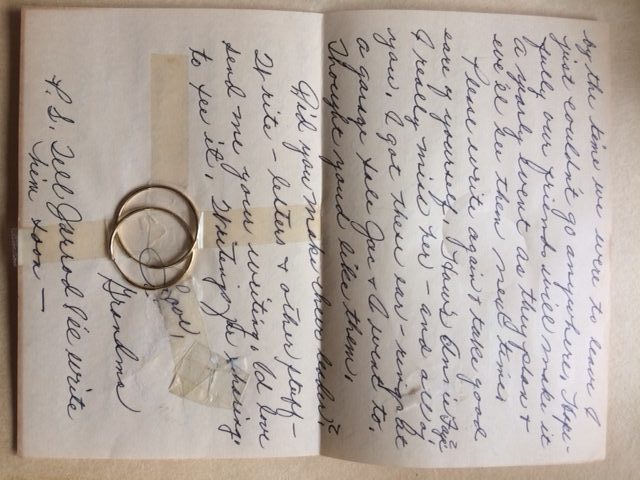 by the time we were to leave I
just couldn't go anywhere. Hope-
fully our friends will make it
a yearly event as they plan &
we'll see them next time.
Please write again & take good
care of yourself. How's
I really miss her – and all of
you. I got these ear-rings at
a garage sale Joe & I went to.
Thought you'd like them.
Did you make cheerleader?
Write – letters & other stuff –
send me your writing, I'd love
to see it. Writing is sharing.
Love,
Grandma
P.S. Tell Jarrod I'll write
him soon —